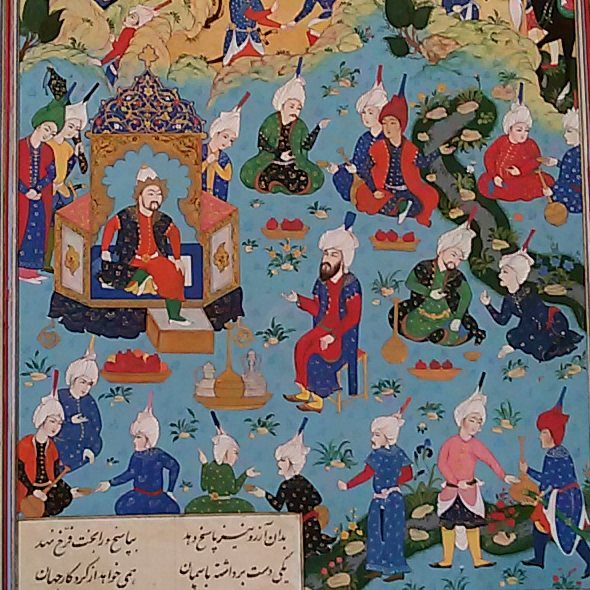 بدان آرزو نیز پاسخ دهد بپاسخ ورا بخت فرخ نهد
یکی دست برداشته باسمان همی خواهد از کردگار جهان